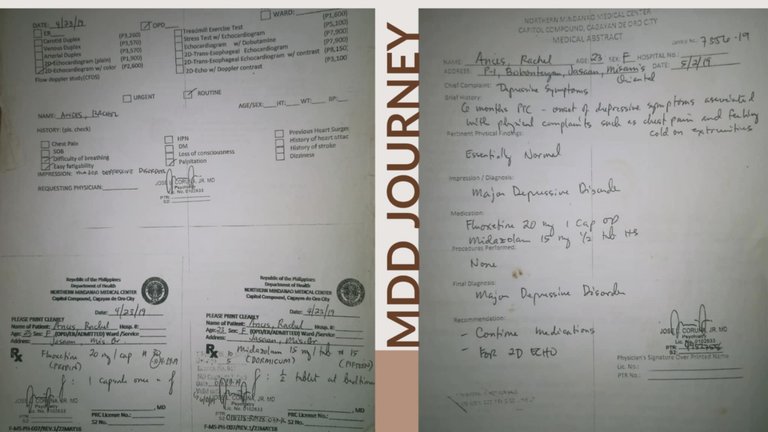 WARD:
(P1,600)
DATE: 4/23/19
OPD
ER
(P3,260)
Treadmill Exercise Test
(P5,100)
Carotid Duplex
(P3,570)
Stress Test w Echocardiogram
(P7,900)
Venous Duplex
(P3,570)
Echocardiogram w/ Dobutamine
(P7,900)
Arterial Duplex
(P1,900)
2D-Trans-Esophageal Echocardiogram
2D-Echocardiogram (plain)
(P2,600)
2D-Trans-Esophageal Echocardiogram w/ contrast
(P8,150)
2D-Echocardiogram w/ color
2D-Echo w/ Doppler contrast
(P3,100)
Flow doppler study(CFDS)
URGENT
ROUTINE
NAME: ANCES, RACHEL
AGE/SEX: HT: WT: BP:
HISTORY: (pls. check)
Chest Pain
HPN
Previous Heart Surger
SOB
DM
History of heart attac
Difficulty of breathing
Loss of consciousness
History of stroke
Easy fatigability
Palpitation
Dizziness
IMPRESSION: MAJOR DEPRESSIVE DISORDER
REQUESTING PHYSICIAN:
JOSE C. CORUÑA, JR. MD
Psychiatry
Lic. No. 0102633
PTR:
S2
Republic of the Philippines
Department of Health
NORTHERN MINDANAO MEDICAL CENTER
Capitol Compound, Cagayan de Oro City
Date: 4/23/19
PLEASE PRINT CLEARLY
Name of Patient: Ances, Rachel Hosp. #:
Age: 23 Sex: F (OPD/ER/ADMITTED) Ward/Service
Address: Jasaan, Mis. Or
Rx
Fluoxetine 20 mg/cap #
: 1 capsule once
JOSE C. CORUÑA, JR. MD
Psychiatry
Lic. No. 0102633
, MD
PRC License No.:
S2 No.
F-MS-PH-007/REV.1/22MAR18
Republic of the Philippines
Department of Health
NORTHERN MINDANAO MEDICAL CENTER
Capitol Compound, Cagayan de Oro City
Date: 4/23/19
PLEASE PRINT CLEARLY
Name of Patient: Ances, Rachel Hosp. #:
Age: 23 Sex: F (OPD/ER/ADMITTED) Ward/Service
Address: Jasaan, Mis. Or
Rx
Midazolam 15 mg/tab # 15
(DORMICUM)
: 1/2 tablet at bedtime
JOSE C. CORUÑA, JR. MD
Psychiatry
Lic. No. 0102633
, MD
PRC License No.:
S2 No.
F-MS-PH-007/REV.1/22MAR18
MDD JOURNEY
NORTHERN MINDANAO MEDICAL CENTER
CAPITOL COMPOUND, CAGAYAN DE ORO CITY
MEDICAL ABSTRACT
7556-19
NAME: Ances, Rachel AGE 23 SEX F HOSPITAL NO.
ADDRESS: P-1, Bobontugan, Jasaan, Misamis Oriental DATE: 5/2/19
Chief Complaint: Depressive Symptoms
Brief History:
6 months PTC - onset of depressive symptoms associated
with physical complaints such as chest pain and feeling
cold on extremities
Pertinent Physical Findings:
Essentially Normal
Impression / Diagnosis:
Major Depressive Disorder
Medication:
Fluoxetine 20 mg 1 cap OD
Midazolam 15 mg 1/2 tab HS
Procedures Performed:
None
Final Diagnosis:
Major Depressive Disorder
Recommendation:
- Continue Medications
- FOR 2D ECHO
JOSE C. CORUÑA, JR. MD
Psychiatry
Lic. No. 0102633
S2
Physician's Signature Over Printed Name
Lic. No.:
PTR No.: